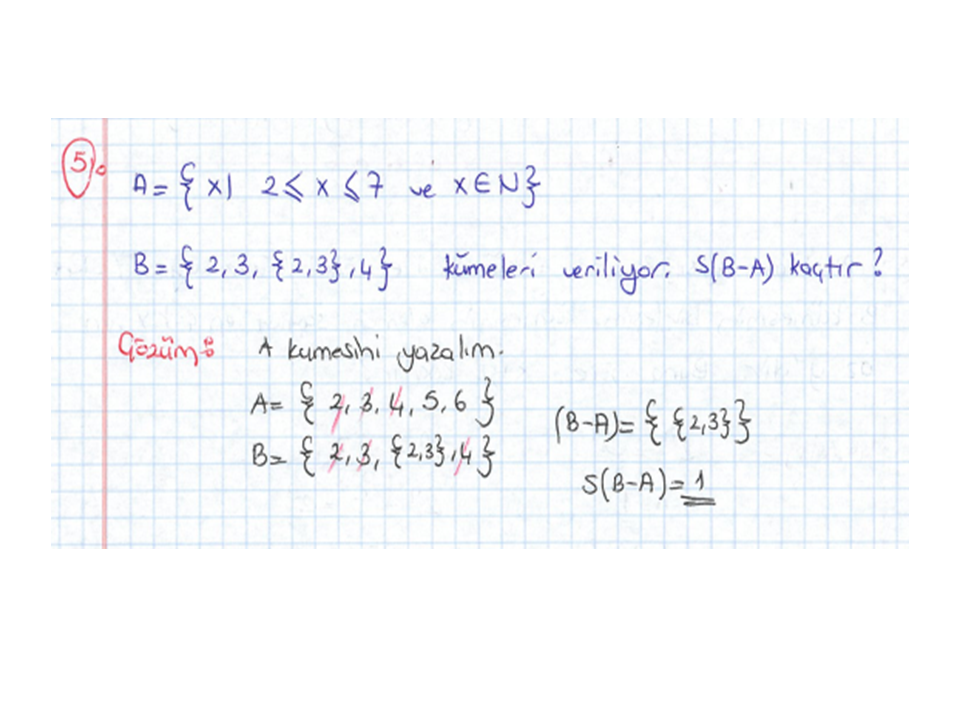 5)
A = { x | 2 ⩽ x ⩽ 7 ve x ∈ N }
B = { 2, 3, { 2,3 }, 4 } kümeleri veriliyor. S(B-A) kaçtır?
Çözüm: A kumesini yazalım.
A = { 2, 3, 4, 5, 6 }
B = { 2, 3, { 2,3 }, 4 }
(B-A) = { { 2,3 } }
S(B-A) = 1